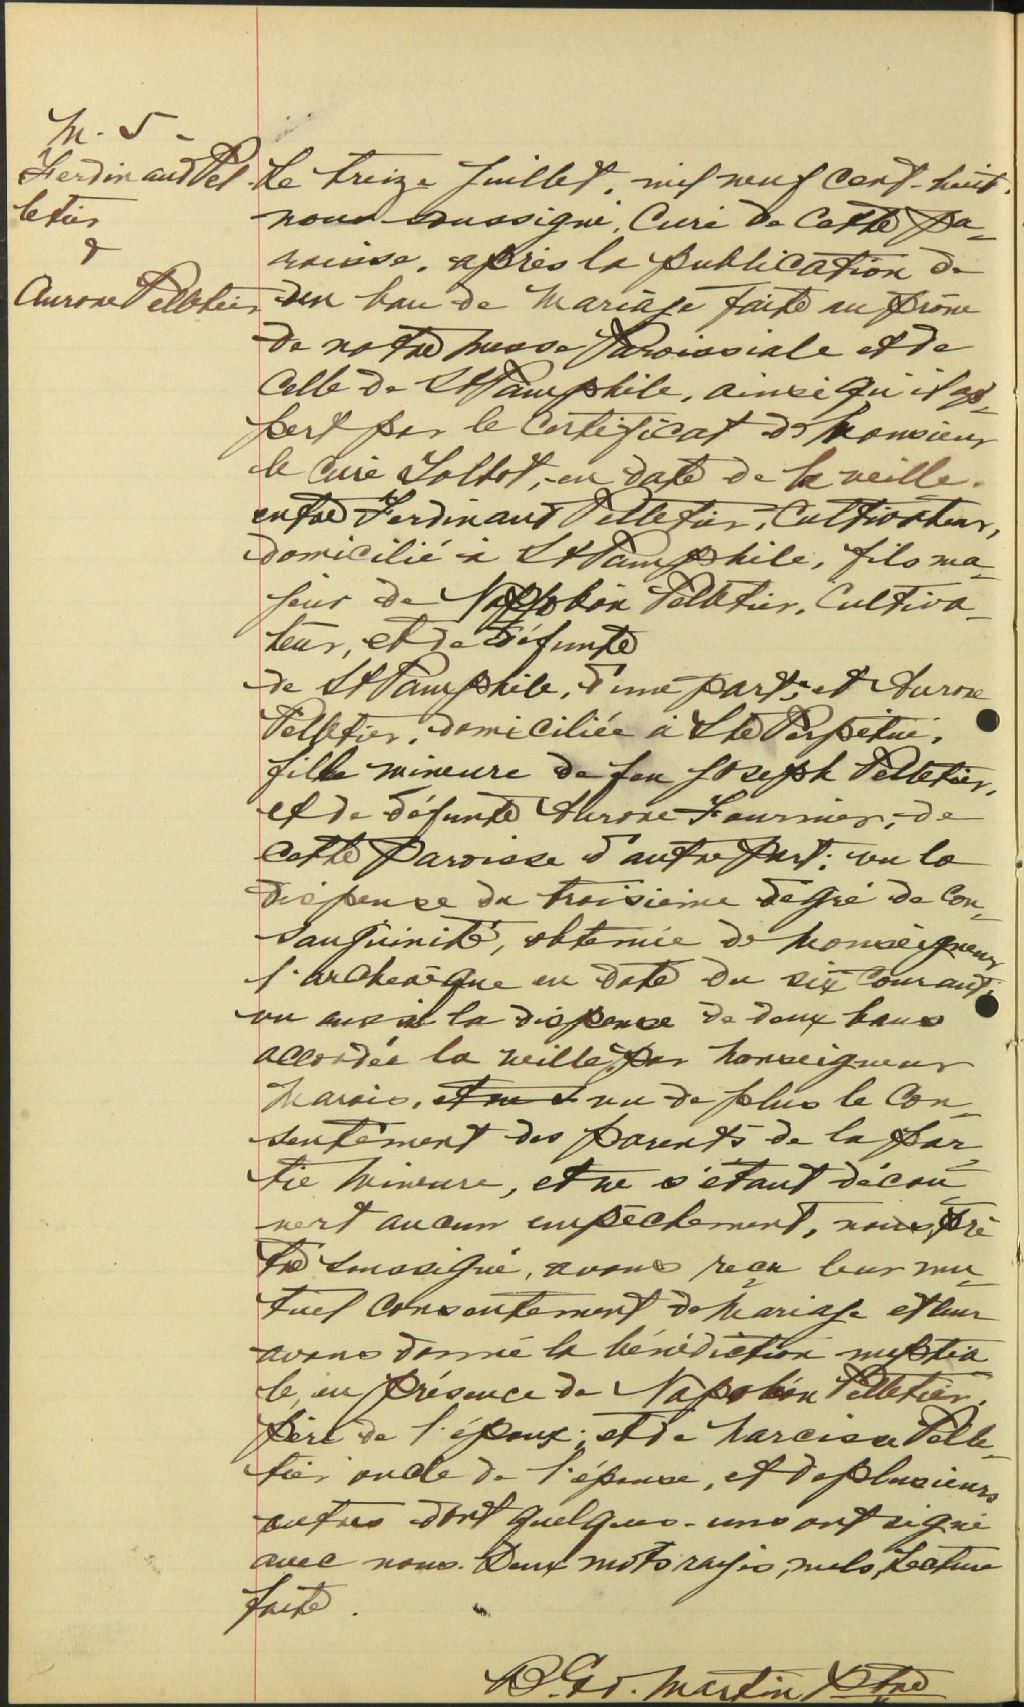 M. 5 -
Ferdinand Pel
letier
&
Aurore Pelletier
Le treize Juillet, mil neuf cent-huit,
nous soussigné, Curé de Cette pa-
roisse, après la publication de
d'un ban de Mariage faite au prône
de notre messe Paroissiale et de
Celle de St Pamphile, ainsi qu'il ap-
pert par le Certificat de Monsieur
le Curé, en date de la veille.
entre Ferdinand Pelletier, Cultivateur,
domicilié à St Pamphile, fils ma-
jeur de Napoléon Pelletier, Cultiva-
teur, et de défunte
de St Pamphile, d'une part; et Aurore
Pelletier, domiciliée à Ste Perpétue,
fille mineure de feu Joseph Pelletier,
et de défunte Aurore Fournier, de
cette Paroisse d'autre part; vu la
dispense du troisième dégré de Con-
sanguinité, obtenue de Monseigneur
l'archevêque en date du six courant;
vu aussi la dispense de deux bans
accordée la veille par Monseigneur
Marois, et ne s vu de plus le Con-
sentement des parents de la par-
tie Mineure, et ne s'étant décou-
vert aucun empêchement, nous, Prê
tre soussigné, avons reçu leur mu-
tuel Consentement de Mariage et leur
avons donné la bénédiction nuptia
le, en présence de Napoléon Pelletier,
père de l'époux; et de Narcisse Pelle-
tier oncle de l'épouse, et de plusieurs
autres dont quelques-uns ont signé
avec nous. Deux mots rayés, nuls, Lecture
faite.
Martin Ptre